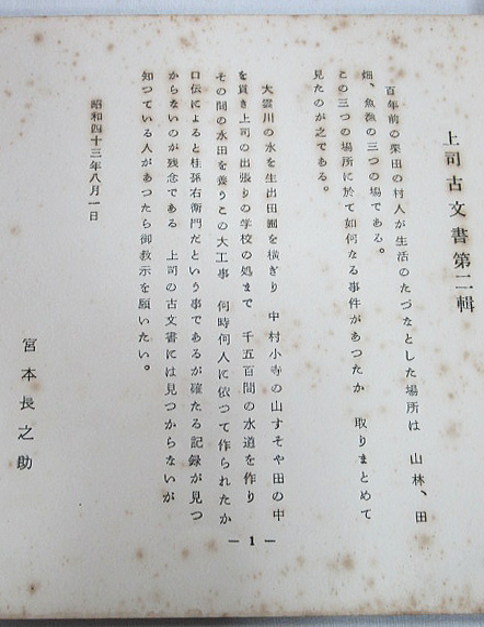 上司古文書第二輯
百年前の栗田の村人が生活のたづなとした場所は　山林、田
畑、魚漁の三つの場である。
この三つの場所に於て如何なる事件があつたか　取りまとめて
見たのが之である。
大雲川の水を生出田圃を横ぎり　中村小寺の山すそや田の中
を貫き上司の出張りの学校の処まで　千五百間の水道を作り
その間の水田を養うこの大工事　何時何人に依つて作られたか
口伝によると桂孫右衛門だという事であるが確たる記録が見つ
からないのが残念である　上司の古文書には見つからないが
知つている人があつたら御教示を願いたい。
昭和四十三年八月一日
宮本長之助
— 1 —